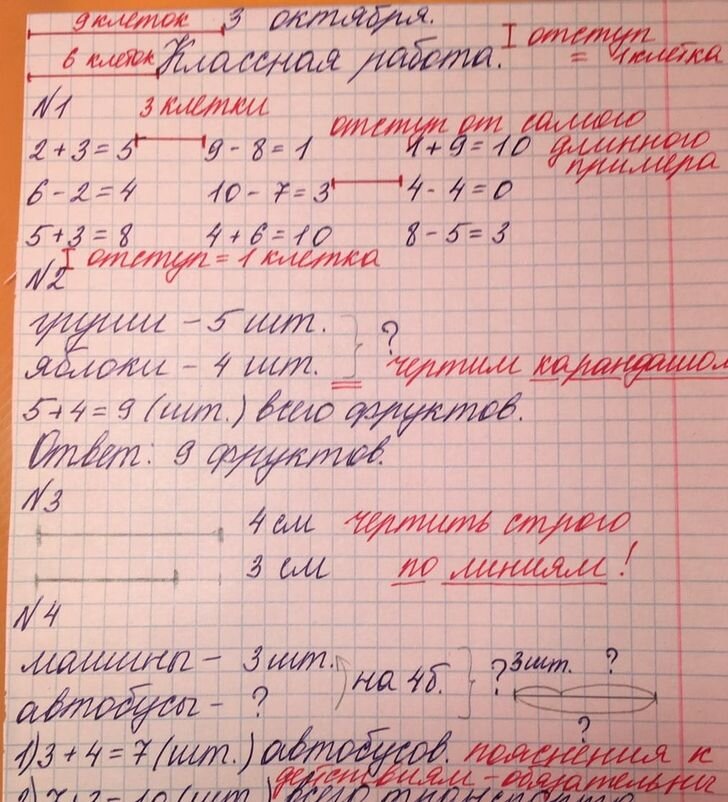 9 клеток 3 октября.
6 клеток Классная работа. отступ = 1 клетка
N1 3 клетки
отступ от самого длинного примера
2 + 3 = 5 9 - 8 = 1 1 + 9 = 10
6 - 2 = 4 10 - 7 = 3 4 - 4 = 0
5 + 3 = 8 4 + 6 = 10 8 - 5 = 3
отступ = 1 клетка
N2
груши - 5 шт.
яблоки - 4 шт. } ? чертим карандашом
5 + 4 = 9 (шт.) всего фруктов.
Ответ: 9 фруктов.
N3
4 см чертить строго
3 см по линиям!
N4
машины - 3 шт. на 4б. } ? 3 шт. ?
автобусы - ? ?
1) 3 + 4 = 7 (шт.) автобусов. пояснения к
действиям - обязательны
2) 7 + 3 = 10 (шт.) всего